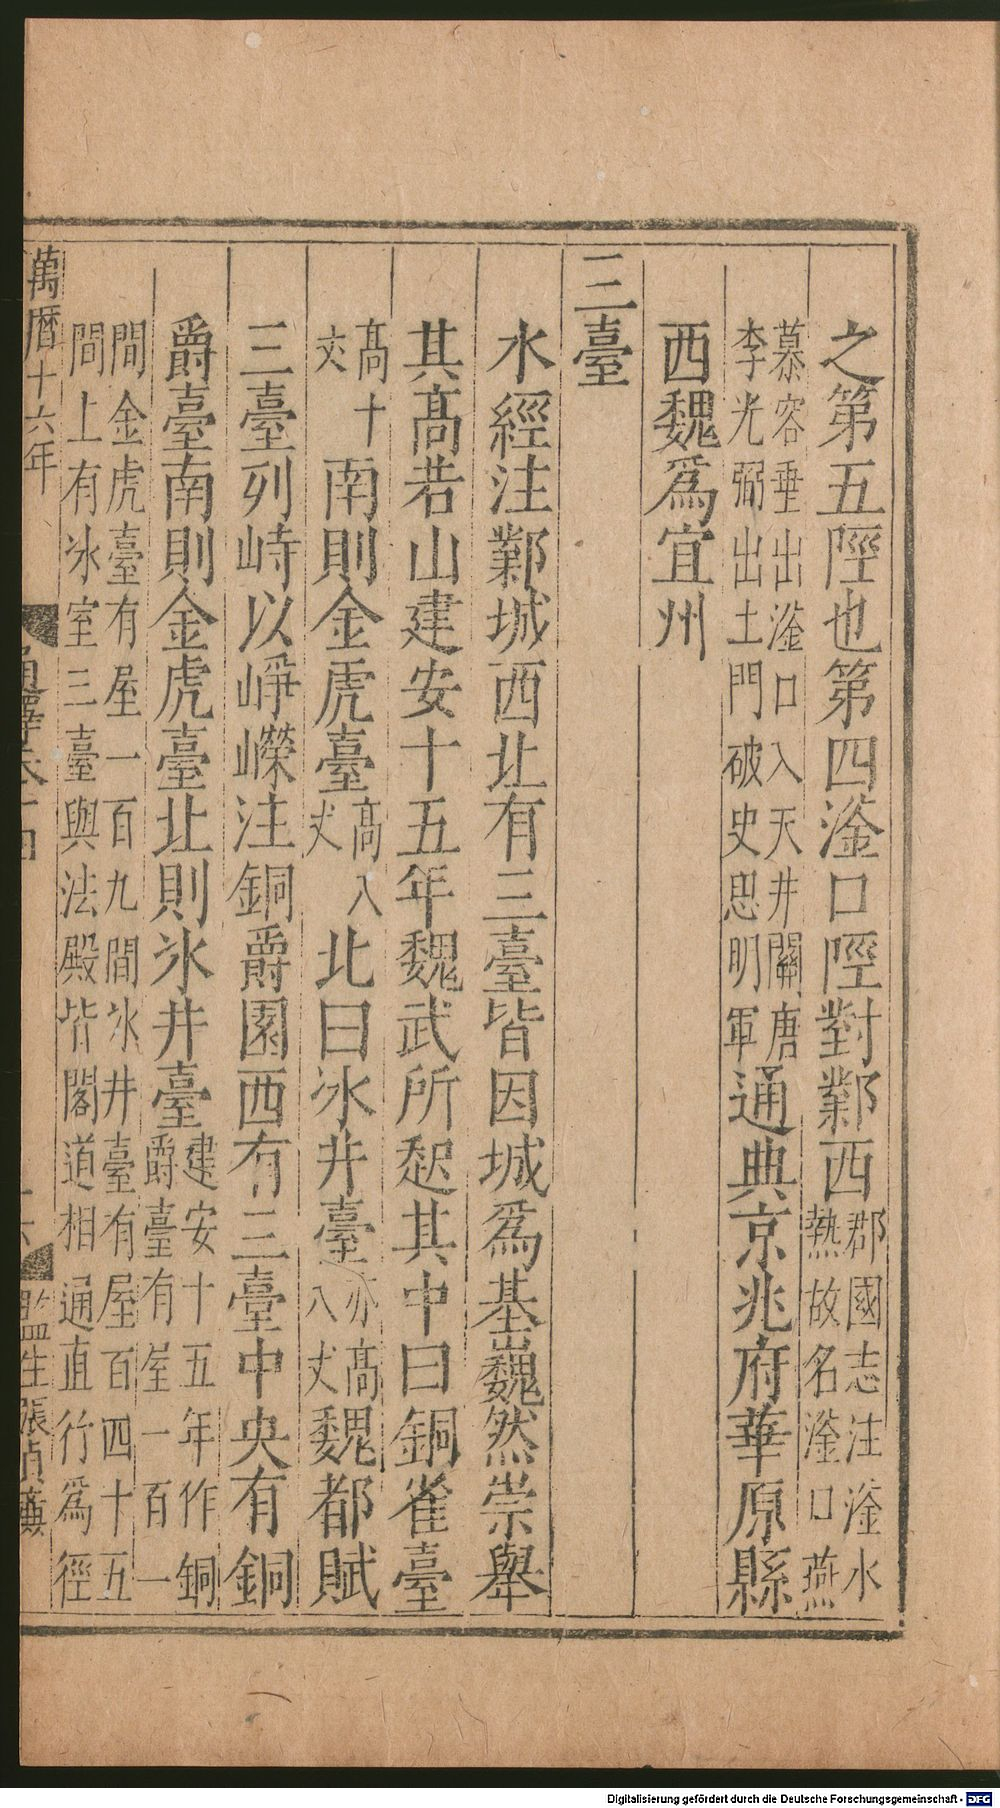 之第五陘也第四滏口陘對鄴西郡國志注滏水熱故名滏口燕
慕容垂出滏口入天井關唐李光弼出土門破史思明軍通典京兆府華原縣
西魏爲宜州
三臺
水經注鄴城西北有三臺皆因城爲基巍然崇舉
其髙若山建安十五年魏武所起其中曰銅雀臺
髙十丈南則金虎臺髙八丈北曰冰井臺亦髙八丈魏都賦
三臺列峙以崢嶸注銅爵園西有三臺中央有銅
爵臺南則金虎臺北則冰井臺建安十五年作銅爵臺有屋一百一
間金虎臺有屋一百九間冰井臺有屋百四十五間上有冰室三臺與法殿皆閣道相通直行爲徑
萬曆十六年
通釋卷十四
十六
監生張
Digitalisierung gefördert durch die Deutsche Forschungsgemeinschaft - DFG